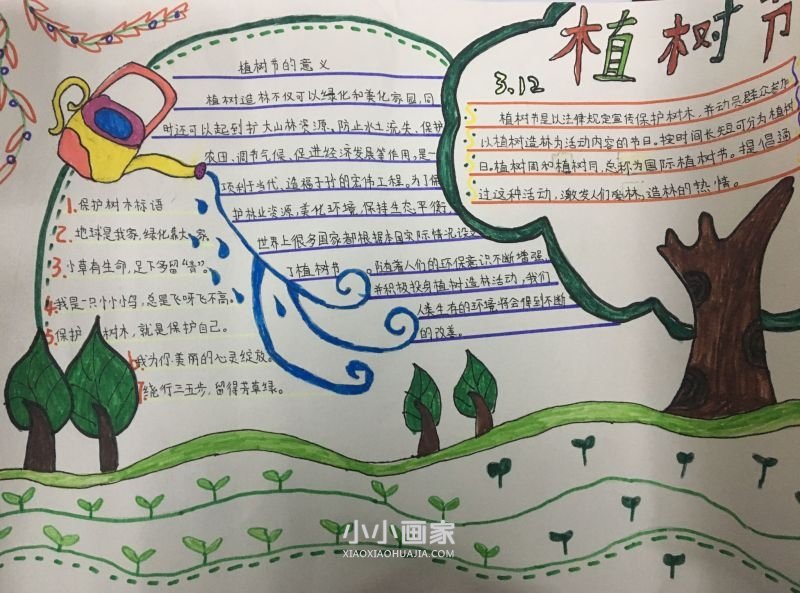 植树节
3.12
植树节是以法律规定宣传保护树木,并动员群众参加
以植树造林为活动内容的节日。按时间长短可分为植树
日、植树周和植树月,总称为国际植树节。提倡通
过这种活动,激发人们爱林、造林的热情。
植树节的意义
植树造林不仅可以绿化和美化家园,同
时还可以起到扩大山林资源、防止水土流失、保护
农田、调节气候、促进经济发展等作用,是一
项利于当代、造福子孙的宏伟工程。为了保
护林业资源,美化环境,保持生态平衡,
世界上很多国家都根据本国实际情况设
了植树节。随着人们的环保意识不断增强,
并积极投身植树造林活动,我们
人类生存的环境将会得到不断
的改善。
1.保护树木标语
2.地球是我家,绿化靠大家
3.小草有生命,足下多留“青”。
4.我是一只小小鸟,总是飞呀飞不高。
5.保护树木,就是保护自己。
我为你美丽的心灵绽放。
7绕行三五步,留得芳草绿。
小小画家
XIAOXIAOHUAJIA.COM